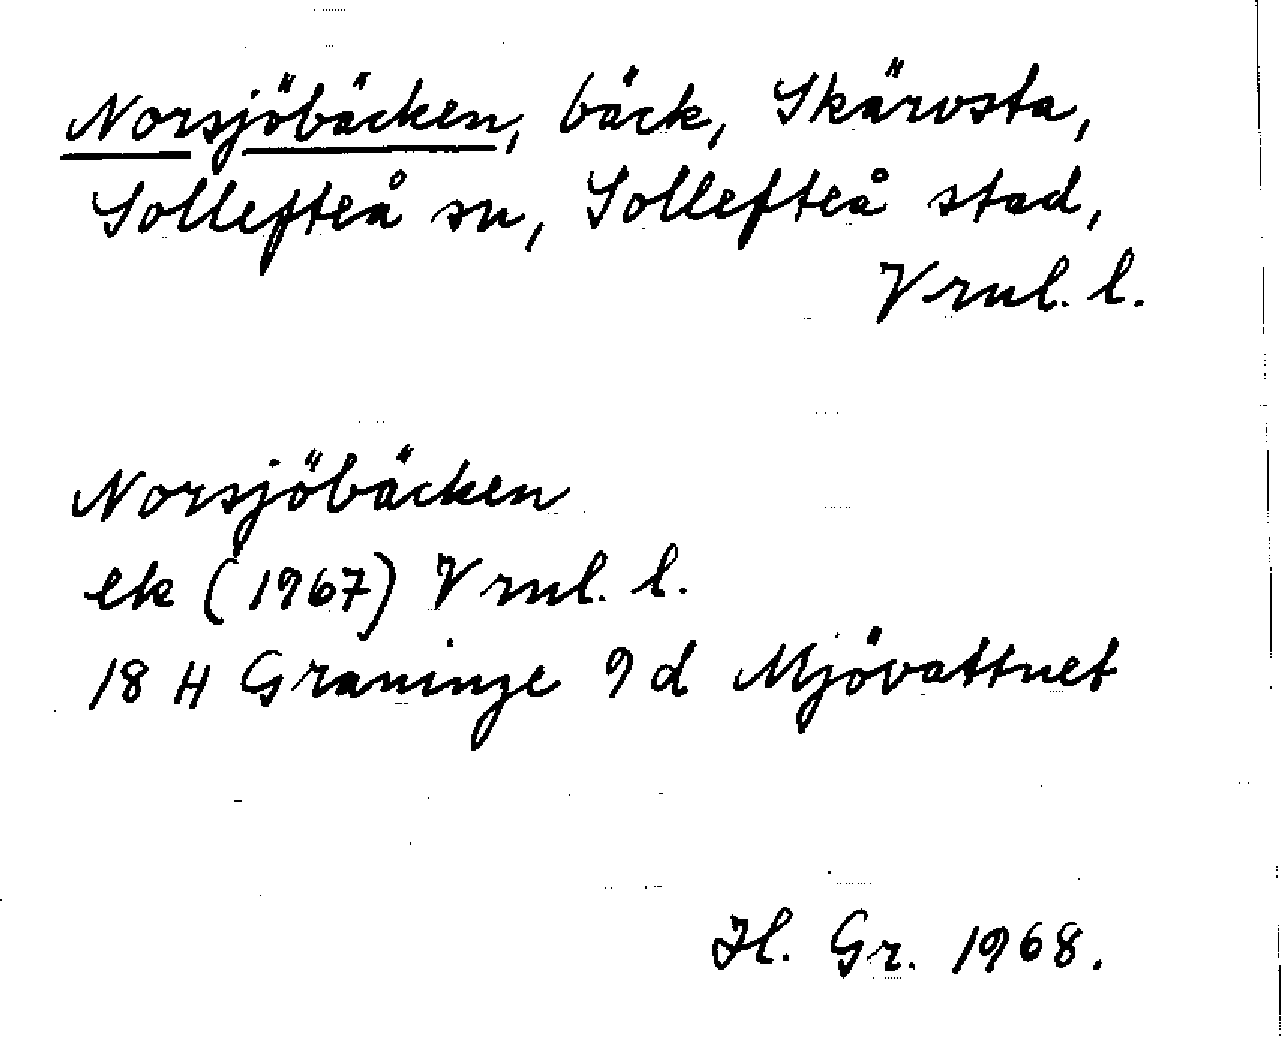 Norsjöbäcken, bäck, Skärvsta,
Sollefteå sn, Sollefteå stad,
Vrnl. l.
Norsjöbäcken
ek (1967) Vrnl. l.
18 H Graninge 9 d Mjövattnet
Hl. Gr. 1968.